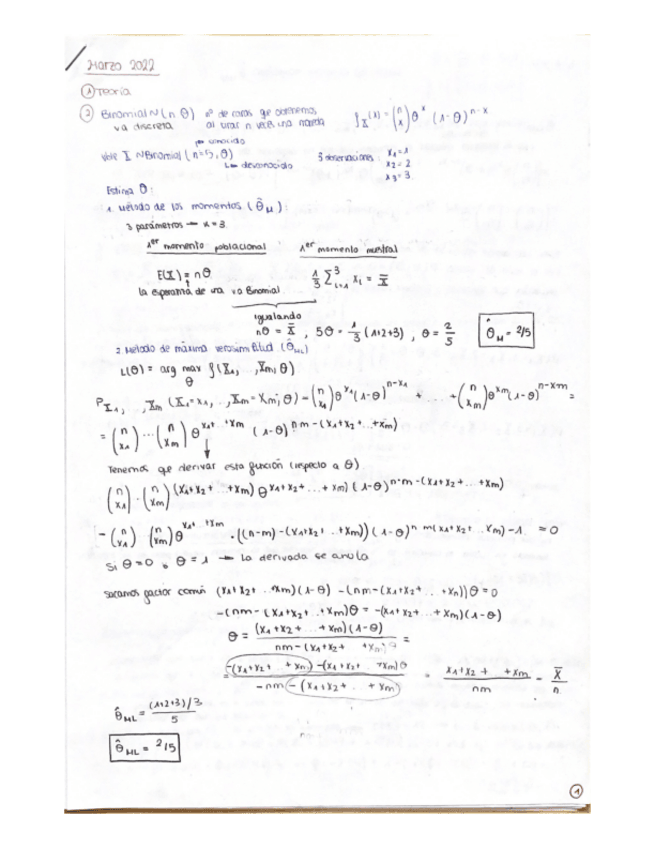 Marzo 2022
① Teoría
② Binomial ~ (n, θ) nº de caras que obtenemos f_X(x) = (n x) θ^x (1-θ)^{n-x}
va discreta al tirar n veces una moneda
conocido
X ~ Binomial (n=5, θ) 3 observaciones x₁=1
desconocido x₂=2
x₃=3
Estima θ:
1. Método de los momentos (θ̂_M):
3 parámetros → n=3
1er momento poblacional 1er momento muestral
E(X) = nθ 1/3 Σ_{i=1}^3 x_i = X̄
la esperanza de una va Binomial
igualando
nθ = X̄, 5θ = 1/3 (1+2+3), θ = 2/5 θ̂_M = 2/5
2. Método de máxima verosimilitud (θ̂_ML)
L(θ) = arg max_θ f(X₁, ., X_m; θ)
P_{X₁, ., X_m} (X₁=x₁, .., X_m=x_m; θ) = (n x₁) θ^{x₁} (1-θ)^{n-x₁} + ... + (n x_m) θ^{x_m} (1-θ)^{n-x_m} =
= (n x₁) ... (n x_m) θ^{x₁+ +x_m} (1-θ)^{n·m-(x₁+x₂+...+x_m)}
Tenemos que derivar esta función (respecto a θ)
(n x₁) · (n x_m) (x₁+x₂+ ...+x_m) θ^{x₁+x₂+...+x_m} (1-θ)^{n·m-(x₁+x₂+...+x_m)}
- (n x₁) (n x_m) θ^{x₁+ +x_m} · ((n-m)-(x₁+x₂+ ..+x_m)) (1-θ)^{n m(x₁+x₂+.. x_m)-1} = 0
Si θ=0 o θ=1 → la derivada se anula
Sacamos factor común (x₁+x₂+ ..+x_m)(1-θ) - (nm-(x₁+x₂+...+x_n))θ = 0
-(nm-(x₁+x₂+..+x_m)θ = -(x₁+x₂+...+x_m)(1-θ)
θ = (x₁+x₂+...+x_m)(1-θ) / nm-(x₁+x₂+ +x_m)θ =
= -(x₁+x₂+..+x_m)-(x₁+x₂+ +x_m)θ / -nm-(x₁+x₂+...+x_m) = x₁+x₂+..+x_m / nm = X̄ / n
θ̂_ML = (1+2+3)/3 / 5
θ̂_ML = 2/5
①